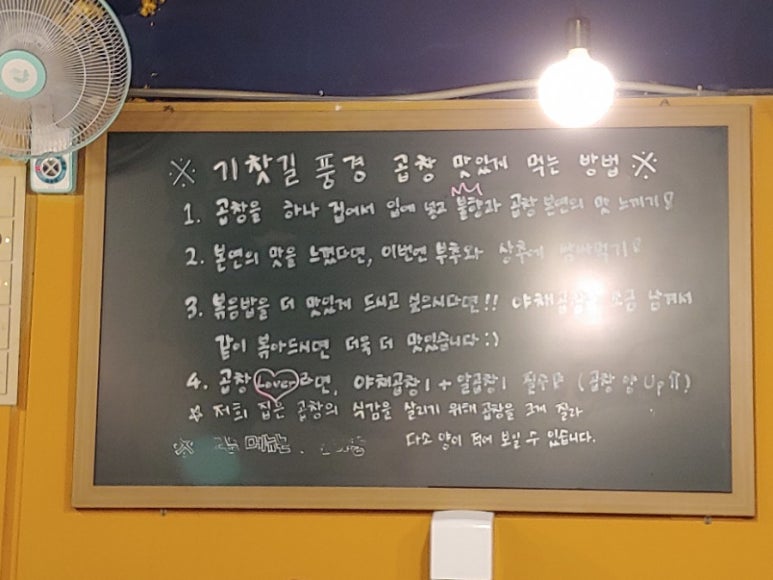 ※ 기찻길 풍경 곱창 맛있게 먹는 방법 ※
1. 곱창을 하나 집어서 입에 넣고 불향과 곱창 본연의 맛 느끼기!
2. 본연의 맛을 느꼈다면, 이번엔 부추와 상추에 쌈싸먹기!
3. 볶음밥을 더 맛있게 드시고 싶으시다면!! 야채곱창을 조금 남겨서
같이 볶아드시면 더욱 더 맛있습니다 :)
4. 곱창 Lover라면, 야채곱창1 + 알곱창1 필수 (곱창 양 Up⇑)
☆ 저희 집은 곱창의 식감을 살리기 위해 곱창을 크게 잘라
다소 양이 적어 보일 수 있습니다.
※ 메뉴는